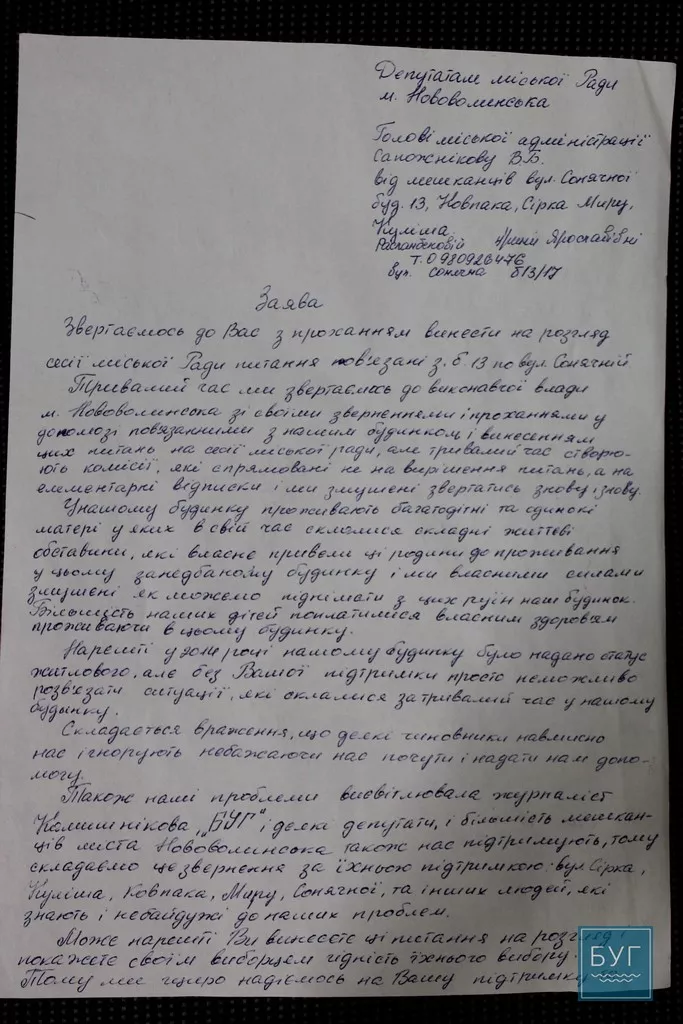 Депутатам міської Ради
м. Нововолинська
Голові міської адміністрації
Сапожнікову В.Б.
від мешканців вул. Сонячної
буд. 13, Ковпака, Сірка, Миру,
Куліша
Ярославівні
Т. 0980926476
вул. сонячна б13/17
Заява
Звертаємось до Вас з проханням винести на розгляд
сесії міської Ради питання пов'язані з б. 13 по вул. Сонячній
Тривалий час ми звертаємось до виконавчої влади
м. Нововолинська зі своїми зверненнями і проханнями у
допомозі пов'язанними з нашим будинком, і винесенням
цих питань на сесії міської ради, але тривалий час створю-
ють комісії, які спрямовані не на вирішення питань, а на
елементаркі відписки і ми змушені звертатись знову і знову.
У нашому будинку проживають багатодітні та одинокі
матері у яких в свій час склалися складні життєві
обставини, які власне привели ці родини до проживання
у цьому занедбаному будинку і ми власними силами
змушені як можемо піднімати з цих руїн наш будинок.
Більшість наших дітей поплатилися власним здоров'ям
проживаючи в цьому будинку.
Нарешті у 2014 році нашому будинку було надано статус
житлового, але без Вашої підтримки просто неможливо
розв'язати ситуації, які склалися за тривалий час у нашому
будинку.
Складається враження, що деякі чиновники навмисно
нас ігнорують небажаючи нас почути і надати нам допо-
могу.
Також нашi проблеми висвітлювала журналіст
Калишнікова „БУГ" і деякі депутати, і більшість мешкан-
ців міста Нововолинська також нас підтримують, тому
складаємо це звернення за їхньою підтримкою: вул Сірка,
Куліша, Ковпака, Миру, Сонячної, та інших людей, які
знають і небайдужі до наших проблем.
Може нарешті Ви винесете ці питання на розгляд і
покажете своїм виборцям гідність їхнього вибору.
Тому ми щиро надіємось на Вашу підтримку
БУГ